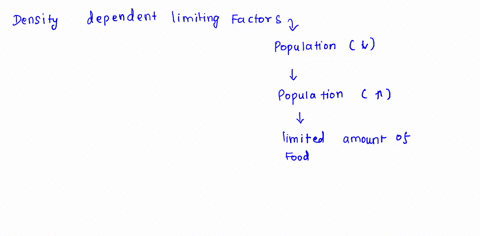 Density dependent limiting Factors ↓
Population (↓)
↓
Population (↑)
↓
limited amount of
Food